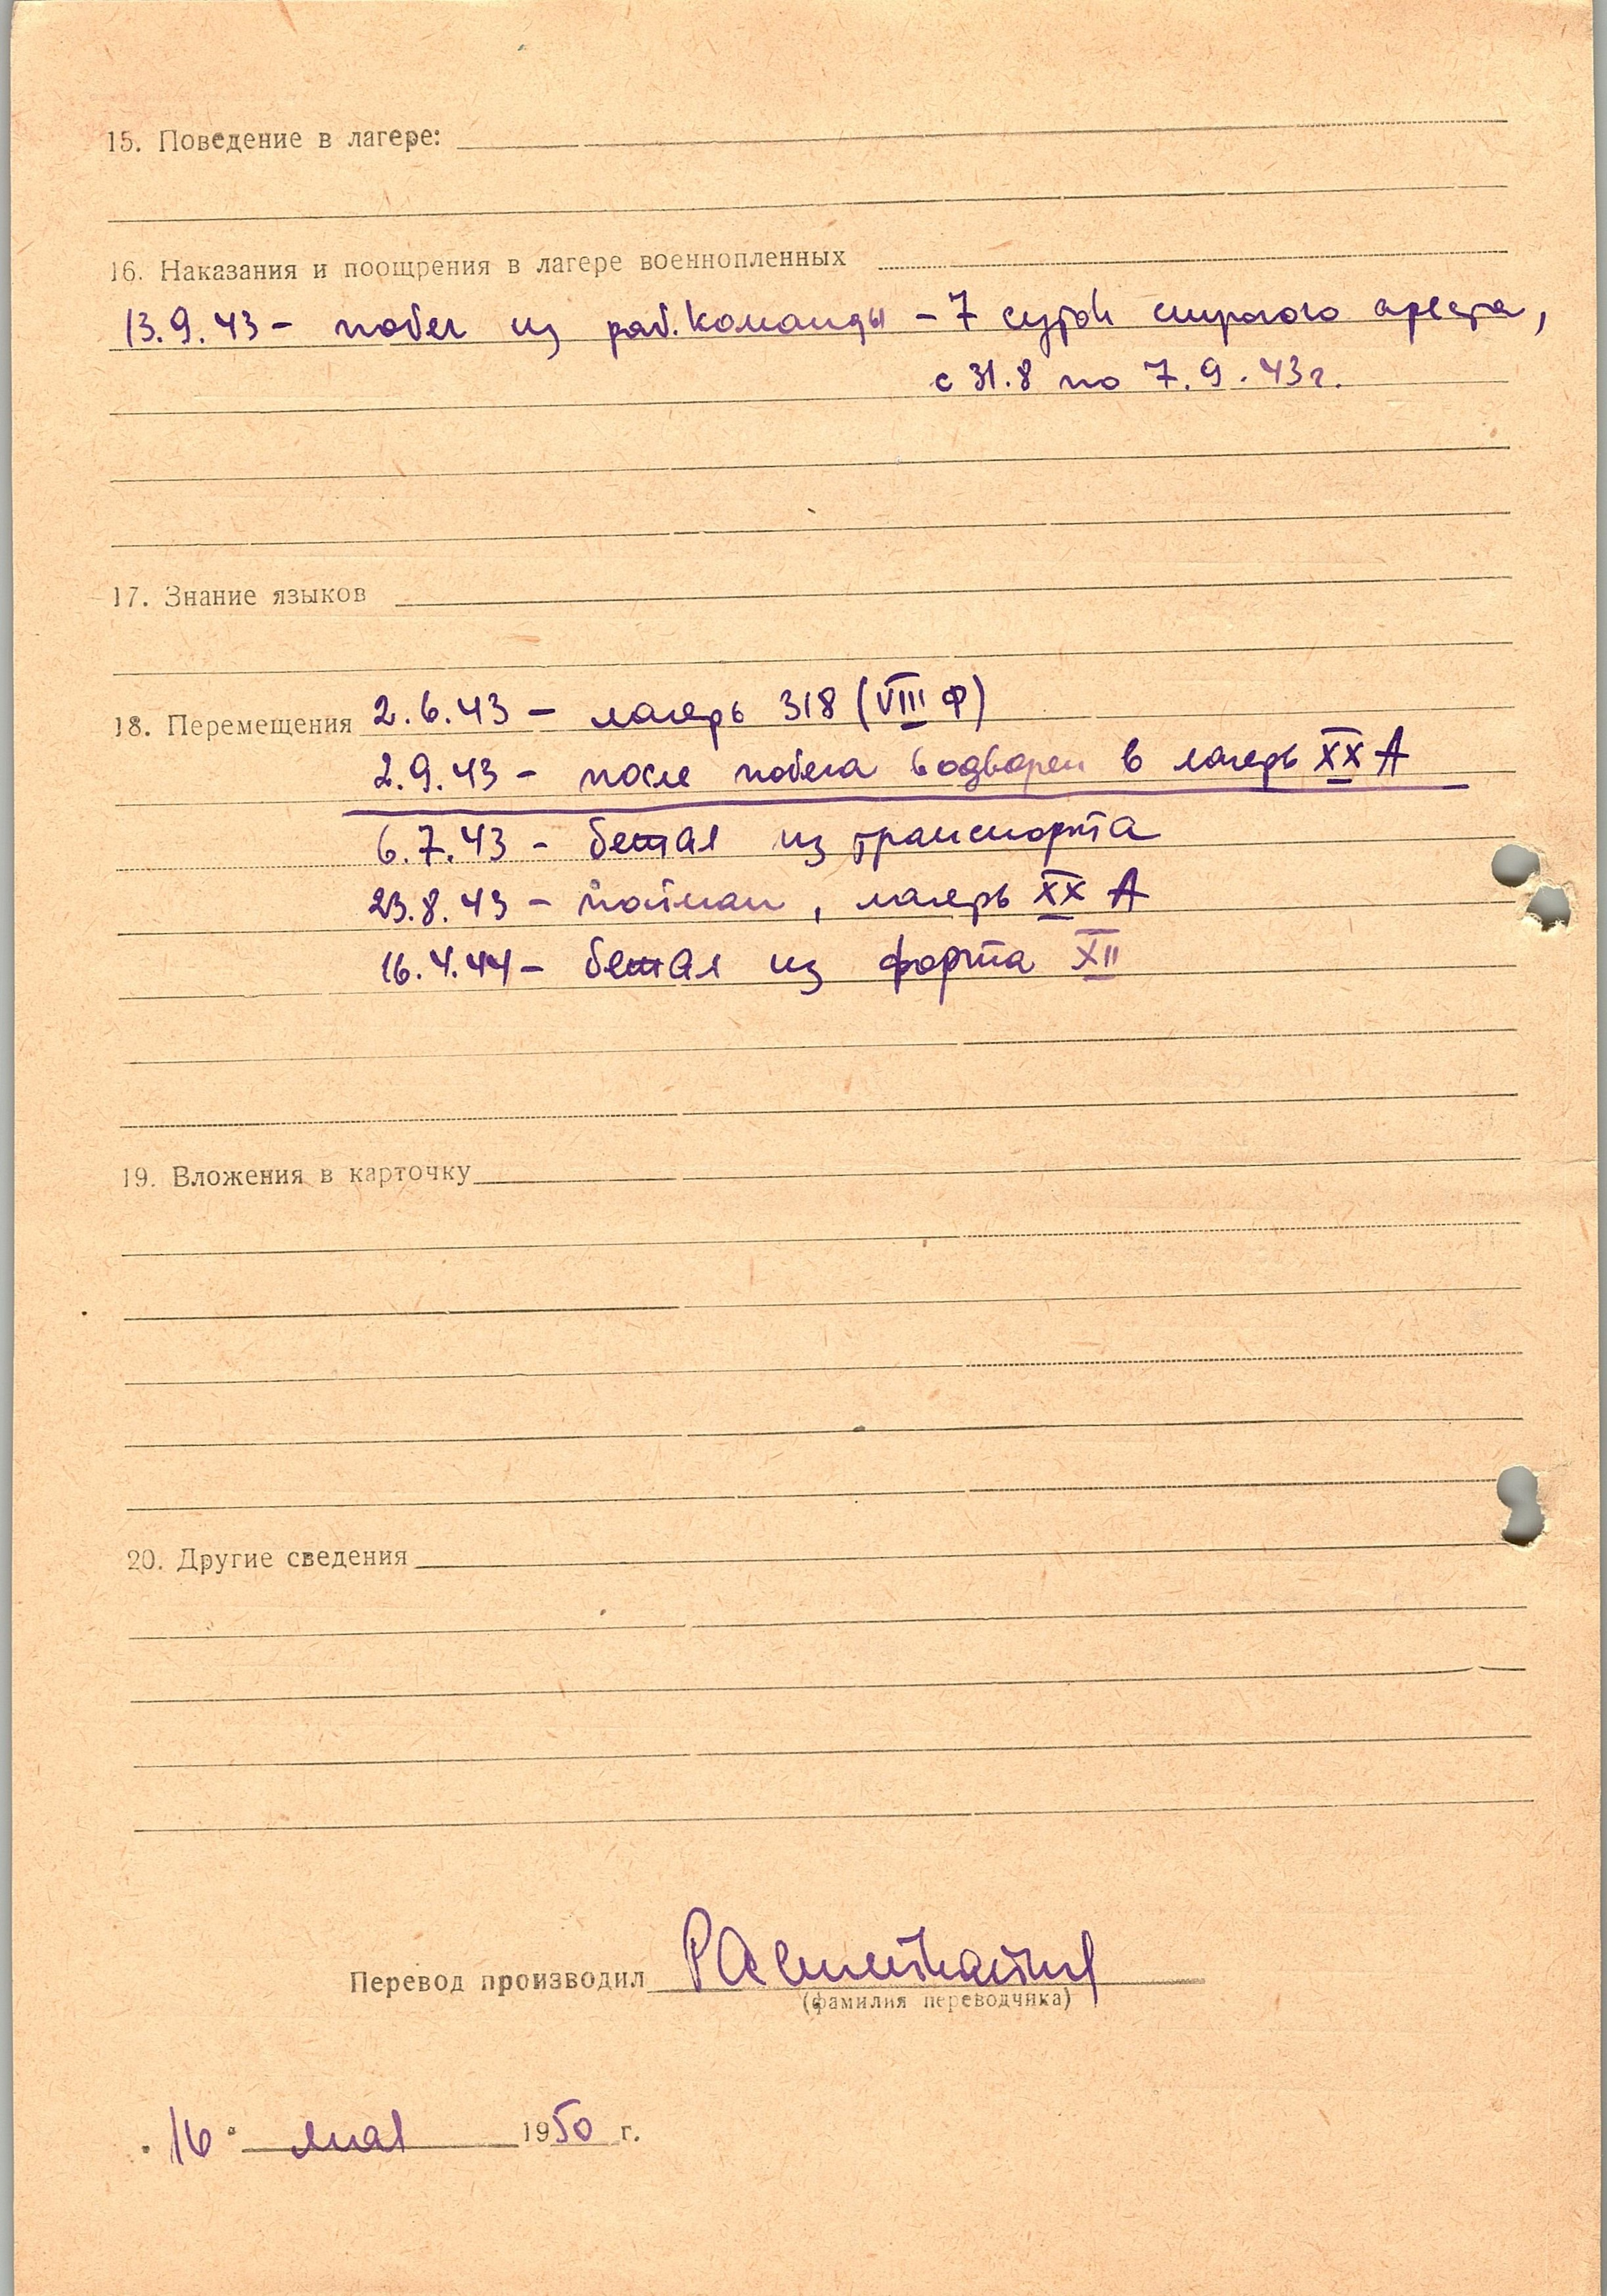 15. Поведение в лагере:
16. Наказания и поощрения в лагере военнопленных
13.9.43 – побег из раб. команды – 7 суток строгого ареста,
с 31.8 по 7.9.43 г.
17. Знание языков
18. Перемещения 2.6.43 – лагерь 318 (VIII Ф)
2.9.43 – после побега водворен в лагерь XX А
6.7.43 – бежал из транспорта
23.8.43 – пойман, лагерь XX А
16.4.44 – бежал из форта XII
19. Вложения в карточку
20. Другие сведения
Перевод производил
(фамилия переводчика)
"16" мая 1950 г.